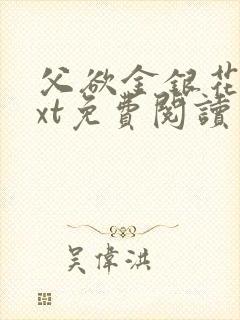 父欲金銀花
xt免費閱讀
吴偉洪